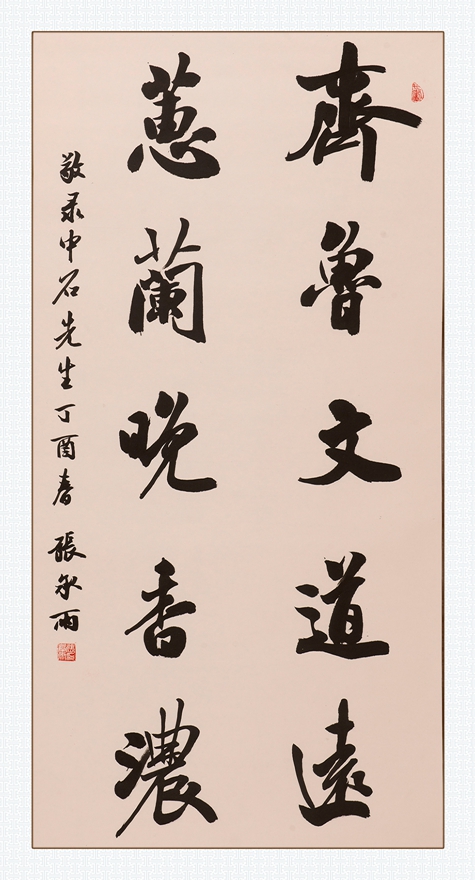 齊魯文道遠
蕙蘭晚香濃
敬录中石先生丁酉春 張承雨